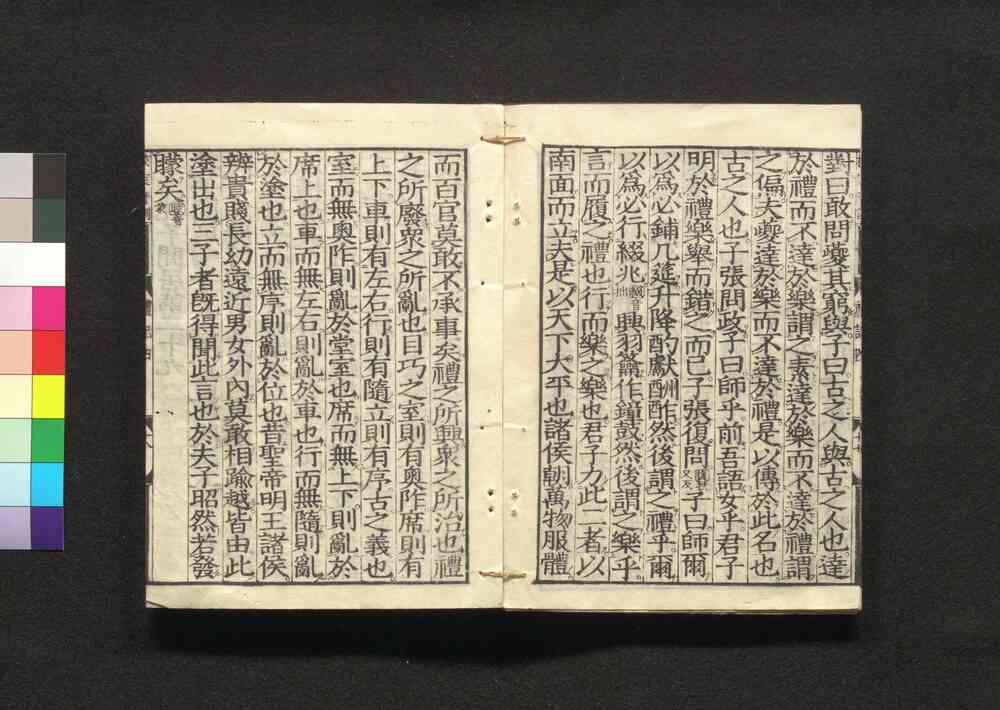 對曰敢問夔其窮與子曰古之人與古之人也達
於禮而不達於樂謂之素達於樂而不達於禮謂
之偏夫夔達於樂而不達於禮是以傳於此名也
古之人也子張問政子曰師乎前吾語女乎君子
明於禮樂舉而錯之而已子張復問子曰師爾
以爲必鋪几筵升降酌獻酬酢然後謂之禮乎爾
以爲必行綴兆興羽籥作鐘鼓然後謂之樂乎
言而履之禮也行而樂之樂也君子力此二者以
南面而立夫是以天下大平也諸侯朝萬物服體
而百官莫敢不承事矣禮之所興衆之所治也禮
之所廢衆之所亂也目巧之室則有奧阼席則有
上下車則有左右行則有隨立則有序古之義也
室而無奧阼則亂於堂室也席而無上下則亂於
席上也車而無左右則亂於車也行而無隨則亂
於塗也立而無序則亂於位也昔聖帝明王諸侯
辨貴賤長幼遠近男女外內莫敢相踰越皆由此
塗出也三子者旣得聞此言也於夫子昭然若發
矇矣